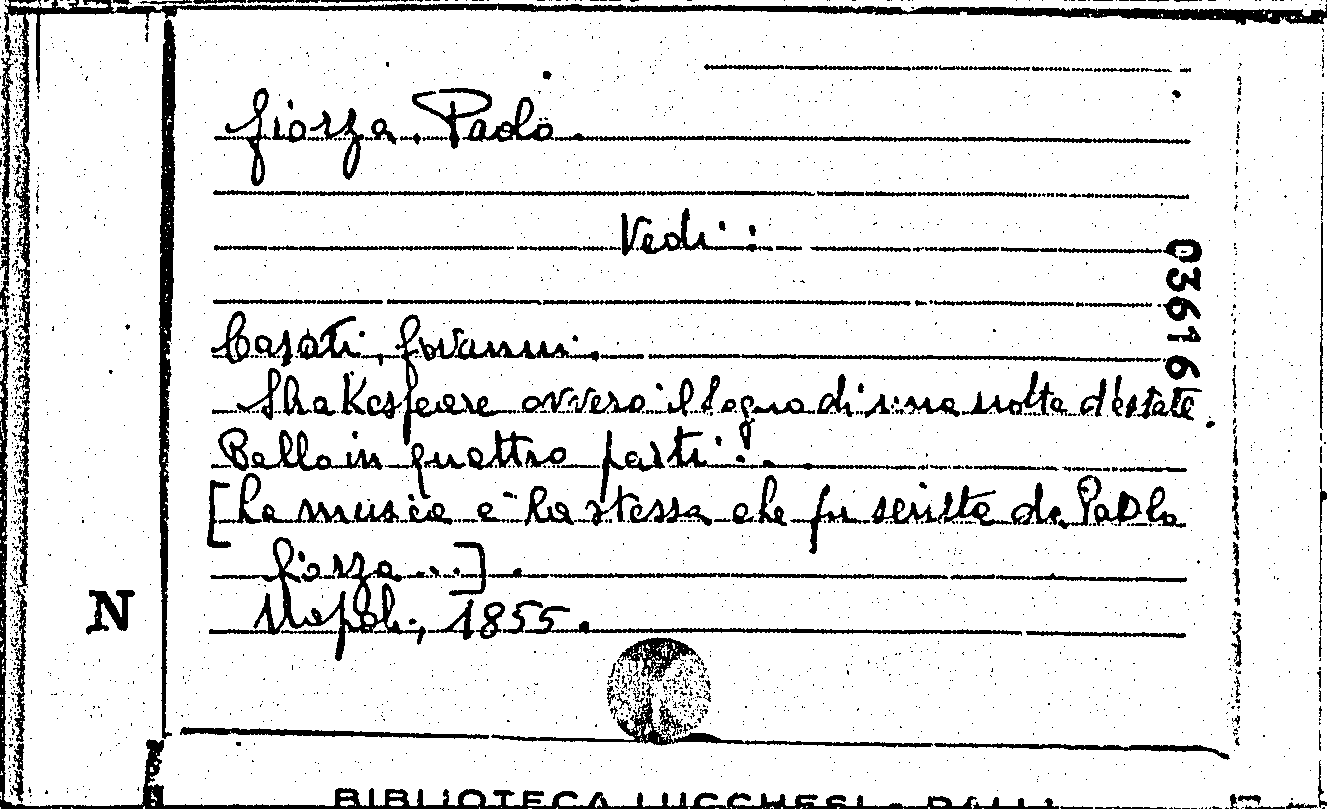 Giorza, Paolo.
Vedi:
036161
Casati, Giovanni.
Shakespeare ovvero il Sogno di una notte d'estate.
Ballo in quattro parti.
[La musica è la stessa che fu scritta da Paolo
Giorza...].
Napoli, 1855.
N
BIBLIOTECA LUCCHESI - PALLI